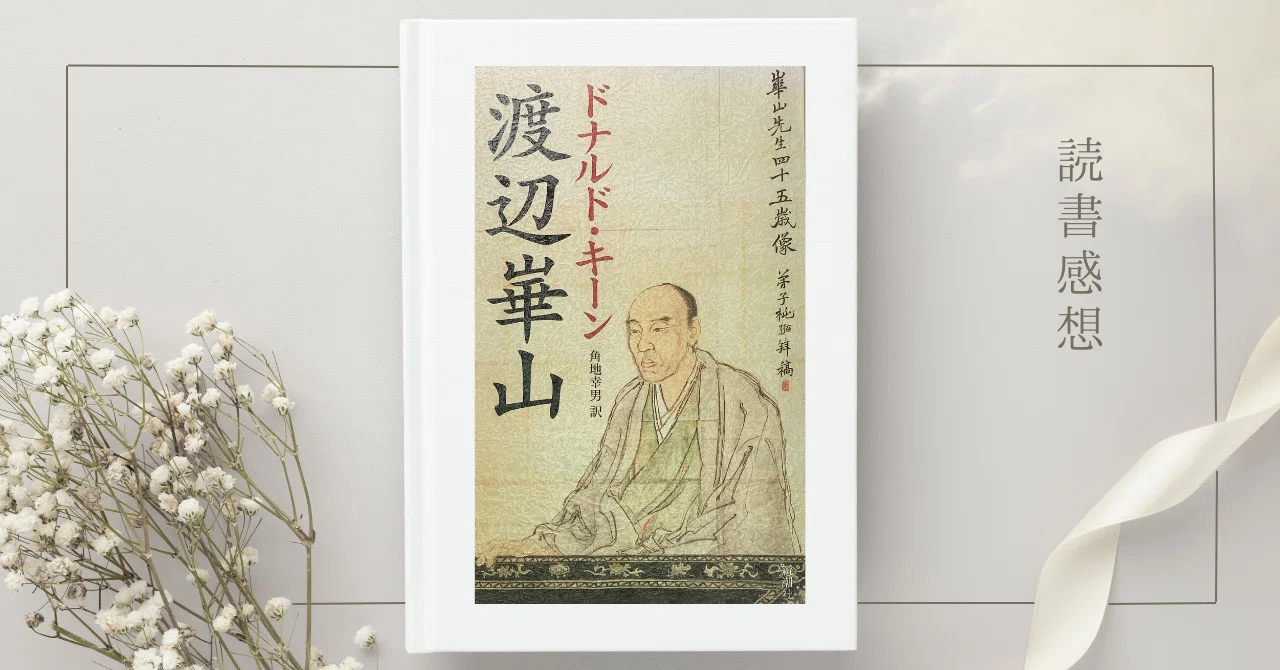 華山先生四十五歳像 弟子椿弼拜稿
ドナルド・キーン
角地幸男 訳
渡辺崋山
新潮社
読書感想